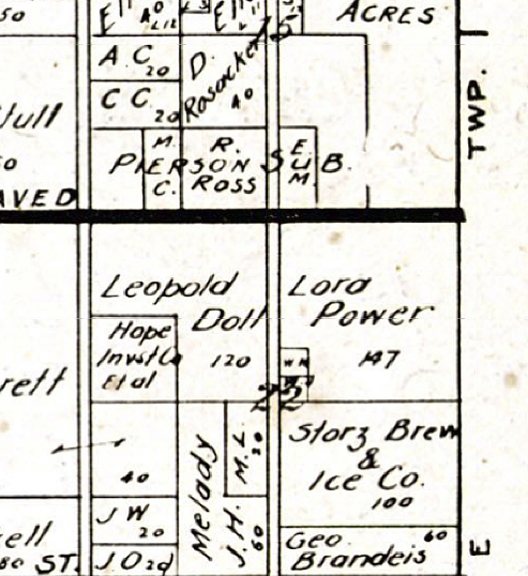 50
ACRES
A C 20
D.
Rosacker
40
C C. 20
M.
C.
R.
ROSS
E
U
M.
PIERSON SUB.
TWP.
AVED
Leopold
Doll
120
Lora
Power
147
Hope
Invst Co
Et al
rett
22
40
Melady
M. L.
20
J. H.
60
Storz Brew
&
Ice Co.
100
J W
20
J. O 20
ell
80 ST.
Geo. 60
Brandeis
E